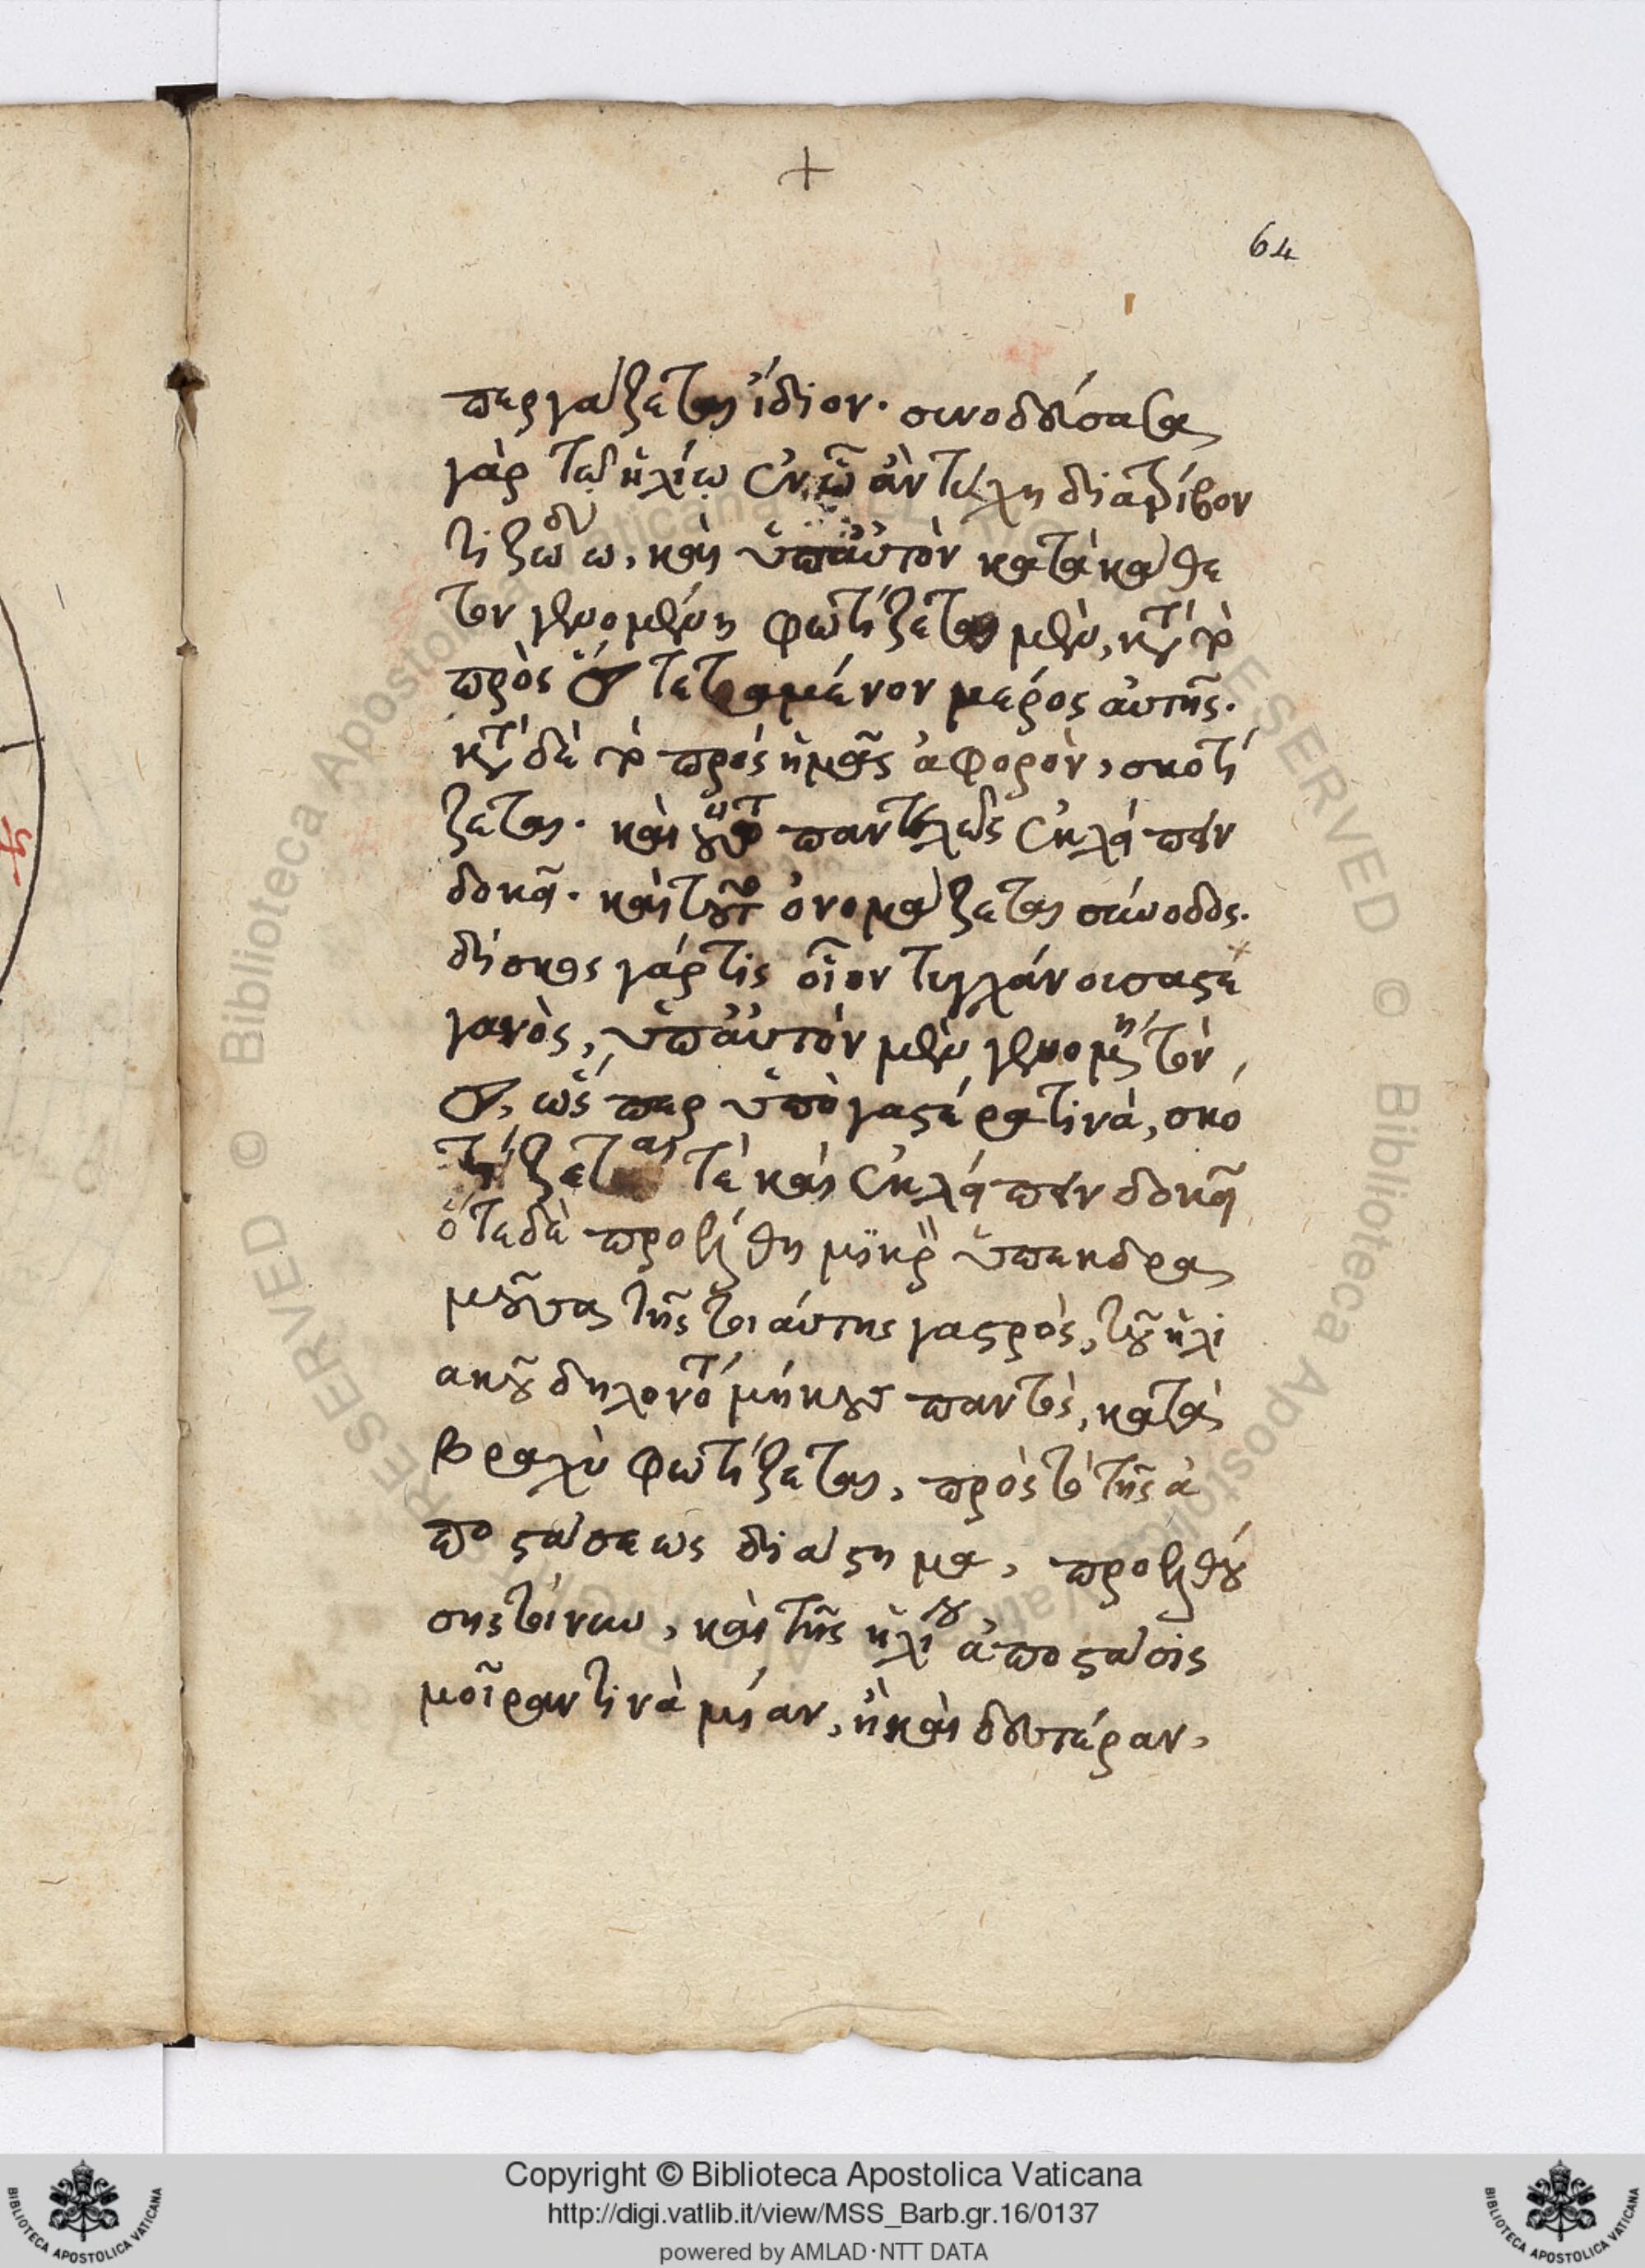 +
64
περγάζεται ἴδιον. συνοδεύσασα
γὰρ τῷ ἡλίῳ ἐν ᾧ ἂν τύχη διατρίβον
τι ζωδίω, καὶ ὑπ' αὐτὸν κατὰ κάθε
τον γενομένη φωτίζεται μὲν, κατὰ τὸ
πρὸς τετραμένον μέρος αὐτῆς.
κατὰ δὲ τὸ πρὸς ἡμᾶς ἀφορὸν, σκοτί
ζεται. καὶ οὕτω παντελῶς ἐκλείπειν
δοκεῖ. καὶ τοῦτο ὀνομάζεται σύνοδος.
δίσκος γάρ τις οἷον τυγχάνουσα στε
γανὸς, ὑπ' αὐτὸν μὲν γενομένη τὸν
ὥς περ ὑπὸ γαστέρα τινὰ, σκο
τίζεταί τε καὶ ἐκλείπειν δοκεῖ
ὅτε δὲ προέλθη μικρὸν ὑπεκδρα
μοῦσα τῆς τοιαύτης γαστρὸς, τοῦ ἡλι
ακοῦ δηλονότι μήκους παντὸς, κατὰ
βραχὺ φωτίζεται, πρὸς τὸ τῆς ἀ
ποστάσεως διάστημα, προελθού
σης τοίνυν, καὶ τῆς ἡλίου ἀποστάσις
μοῖραν τινὰ μίαν, ἢ καὶ δευτέραν,
Copyright © Biblioteca Apostolica Vaticana
http://digi.vatlib.it/view/MSS_Barb.gr.16/0137
powered by AMLAD·NTT DATA
BIBLIOTECA APOSTOLICA VATICANA
BIBLIOTECA APOSTOLICA VATICANA